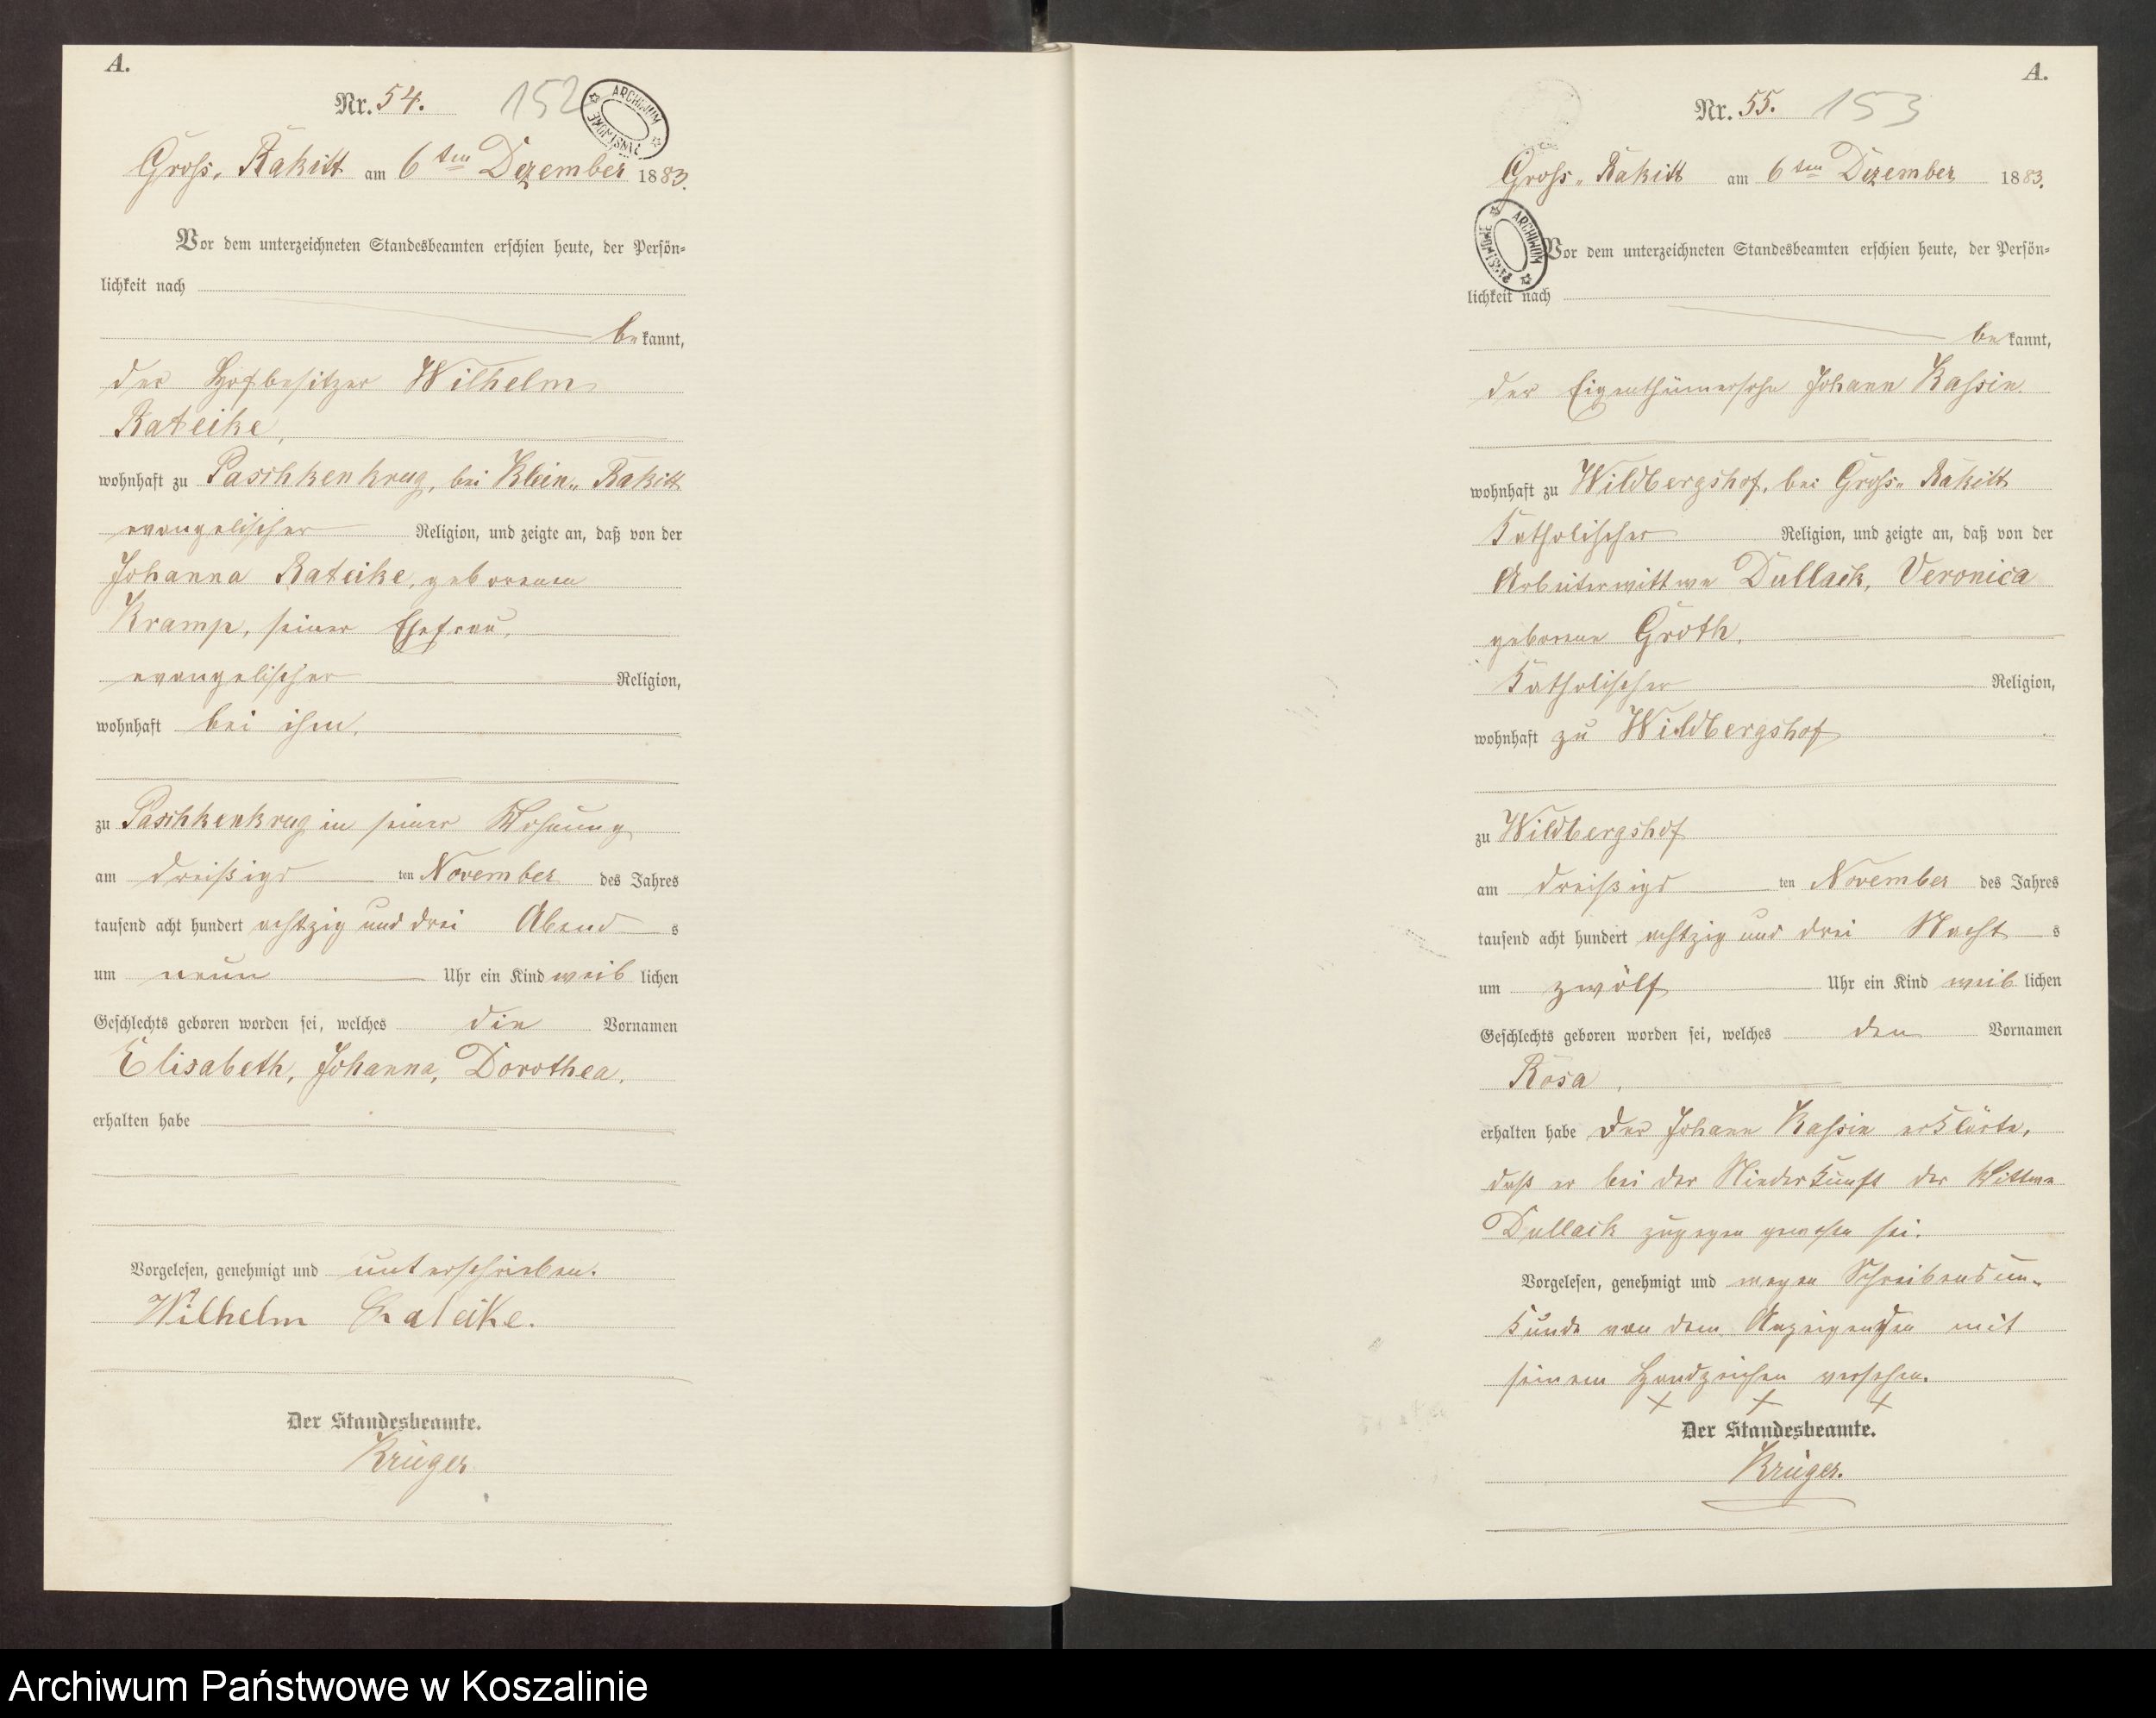 A.
Nr. 54.
152
ARCHIWUM PAŃSTWOWE
Gross„ Rakitt am 6ten Dezember 1883.
Vor dem unterzeichneten Standesbeamten erschien heute, der Persön=
lichkeit nach
bekannt,
der Hofbesitzer Wilhelm
Rateike,
wohnhaft zu Paschkenkrug, bei Klein„ Rakitt
evangelischer Religion, und zeigte an, daß von der
Johanna Rateike, geborenen
Kramp, seiner Ehefrau,
evangelischer Religion,
wohnhaft bei ihm,
zu Paschkenkrug in seiner Wohnung
am dreißigs ten November des Jahres
tausend acht hundert achtzig und drei Abend s
um neun Uhr ein Kind weib lichen
Geschlechts geboren worden sei, welches die Vornamen
Elisabeth, Johanna, Dorothea,
erhalten habe
Vorgelesen, genehmigt und unterschrieben.
Wilhelm Rateike.
Der Standesbeamte.
Krüger
A.
Nr. 55.
153
Gross„ Rakitt am 6ten Dezember 1883.
ARCHIWUM PAŃSTWOWE
Vor dem unterzeichneten Standesbeamten erschien heute, der Persön=
lichkeit nach
bekannt,
der Eigenthümersohn Johann
wohnhaft zu Wildbergshof, bei Gross„ Rakitt
katholischer Religion, und zeigte an, daß von der
Arbeiterwittwe Dullack, Veronica
geborene Groth,
katholischer Religion,
wohnhaft zu Wildbergshof
zu Wildbergshof
am dreißigs ten November des Jahres
tausend acht hundert achtzig und drei Nacht s
um zwölf Uhr ein Kind weib lichen
Geschlechts geboren worden sei, welches den Vornamen
Rosa,
erhalten habe Der Johann erklärte,
daß er bei der Niederkunft der Wittwe
Dullack zugegen gewesen sei.
Vorgelesen, genehmigt und wegen Schreibensun-
kunde von dem Anzeigenden mit
seinem Handzeichen versehen.
X X X
Der Standesbeamte.
Krüger.
Archiwum Państwowe w Koszalinie